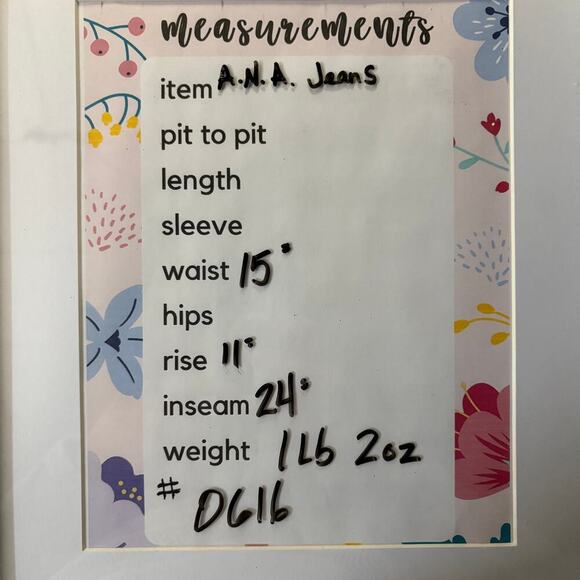 measurements
item A.N.A. Jeans
pit to pit
length
sleeve
waist 15"
hips
rise 11"
inseam 24"
weight 1Lb 2oz
# DG16